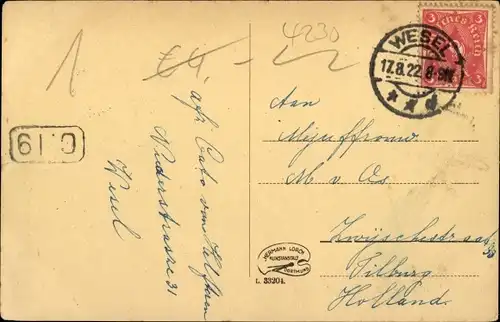 4230
1
afz Cato van
Niederstrasse 31
Wesel
C.19
WESEL
17.8.22. 8-9N.
* * d
3 Deutsches Reich 3
Aan
Mejuffrouw
M v Os
Tilburg
Holland
HERMANN LORCH
KUNSTANSTALT
DORTMUND
L. 33204.